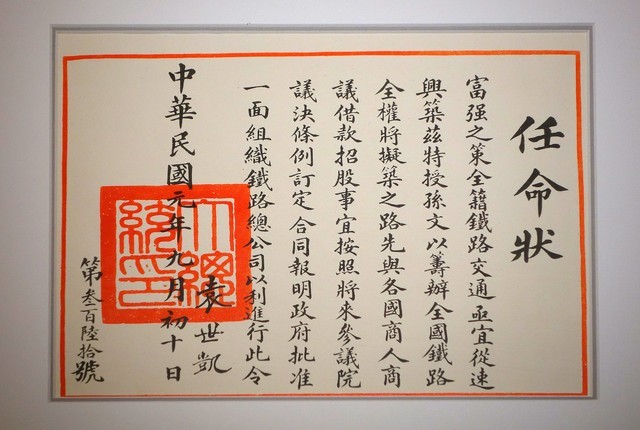 任命狀
富强之策全籍鐵路交通亟宜從速
興築茲特授孫文以籌辦全國鐵路
全權將擬築之路先與各國商人商
議借款招股事宜按照將來參議院
議決條例訂定合同報明政府批准
一面組織鐵路總公司以利進行此令
大總統印
袁世凱
中華民國元年九月初十日
第叁百陸拾號